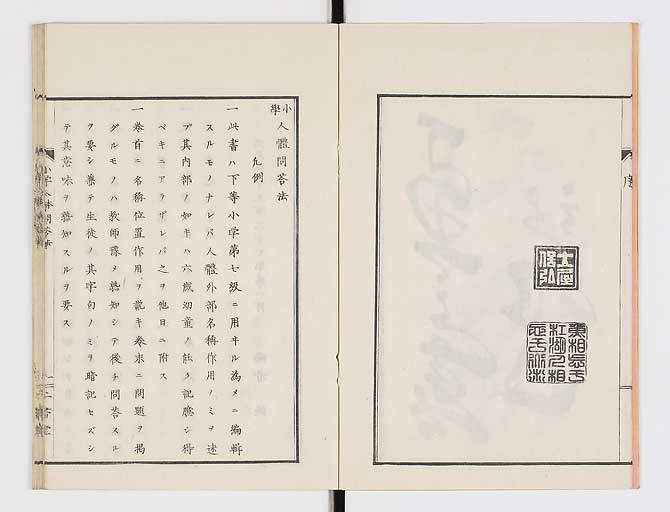 序
士屋
信弘
小學人體問答法
凡例
一此書ハ下等小学第七級ニ用ヰル為メニ編輯
スルモノナレバ人體外部名稱作用ノミヲ述
ブ其内部ノ如キハ六歳幼童ノ能ク記臆シ得
ベキニアラザレバ之ヲ他日ニ附ス
一巻首ニ名稱位置作用ヲ載キ巻末ニ問題ヲ掲
グルモノハ教師豫メ熟知シテ後チ問答スル
ヲ要シ兼テ生徒ノ其字句ノミヲ暗記セズシ
テ其意味ヲ熟知スルヲ要ス
小学人體問答法